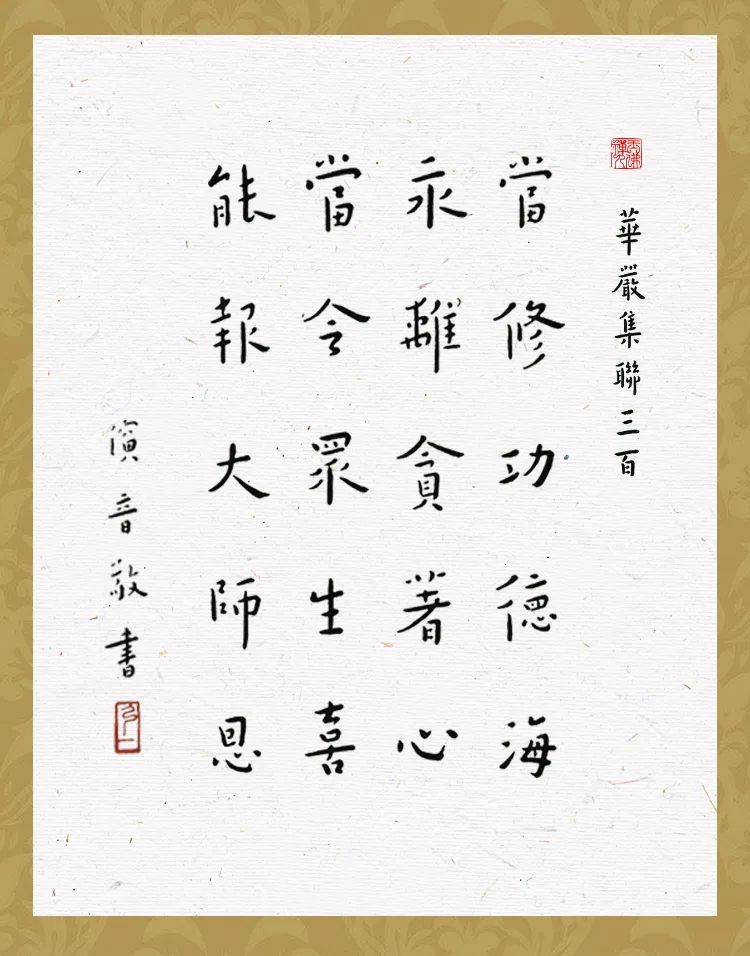 華嚴集聯三百
當修功德海
永離貪著心
當令眾生喜
能報大師恩
演音敬書